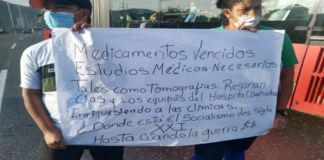 Medicamentos Vencidos
Estudios Médicos Necesarios
Tales como Tomografías. Resonan
cias y los equipos del Hospital Dañados
Enriqueciendo a las clínicas.
¿Donde está el Socialismo del Siglo
XXI
Hasta Cuándo la guerra $$